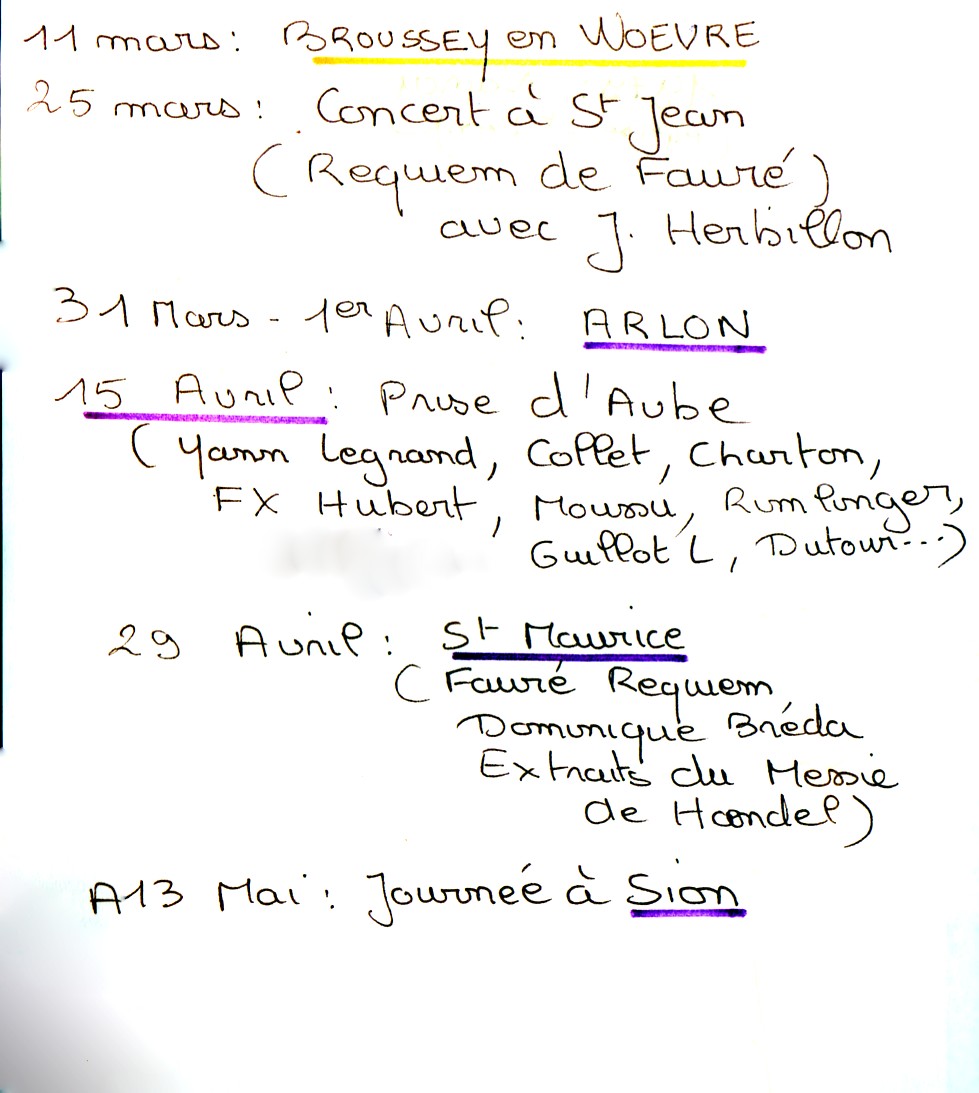 11 mars : BROUSSEY en WOEVRE
25 mars : Concert à St Jean
(Requiem de Fauré)
avec J. Herbillon
31 Mars - 1er Avril : ARLON
15 Avril : Prise d'Aube
(Yann Legrand, Collet, Charton,
FX Hubert, Moussu, Rumlinger,
Guillot L, Dutour...)
29 Avril : St Maurice
(Fauré Requiem
Dominique Bréda
Extraits du Messie
de Haendel)
A13 Mai : Journée à Sion